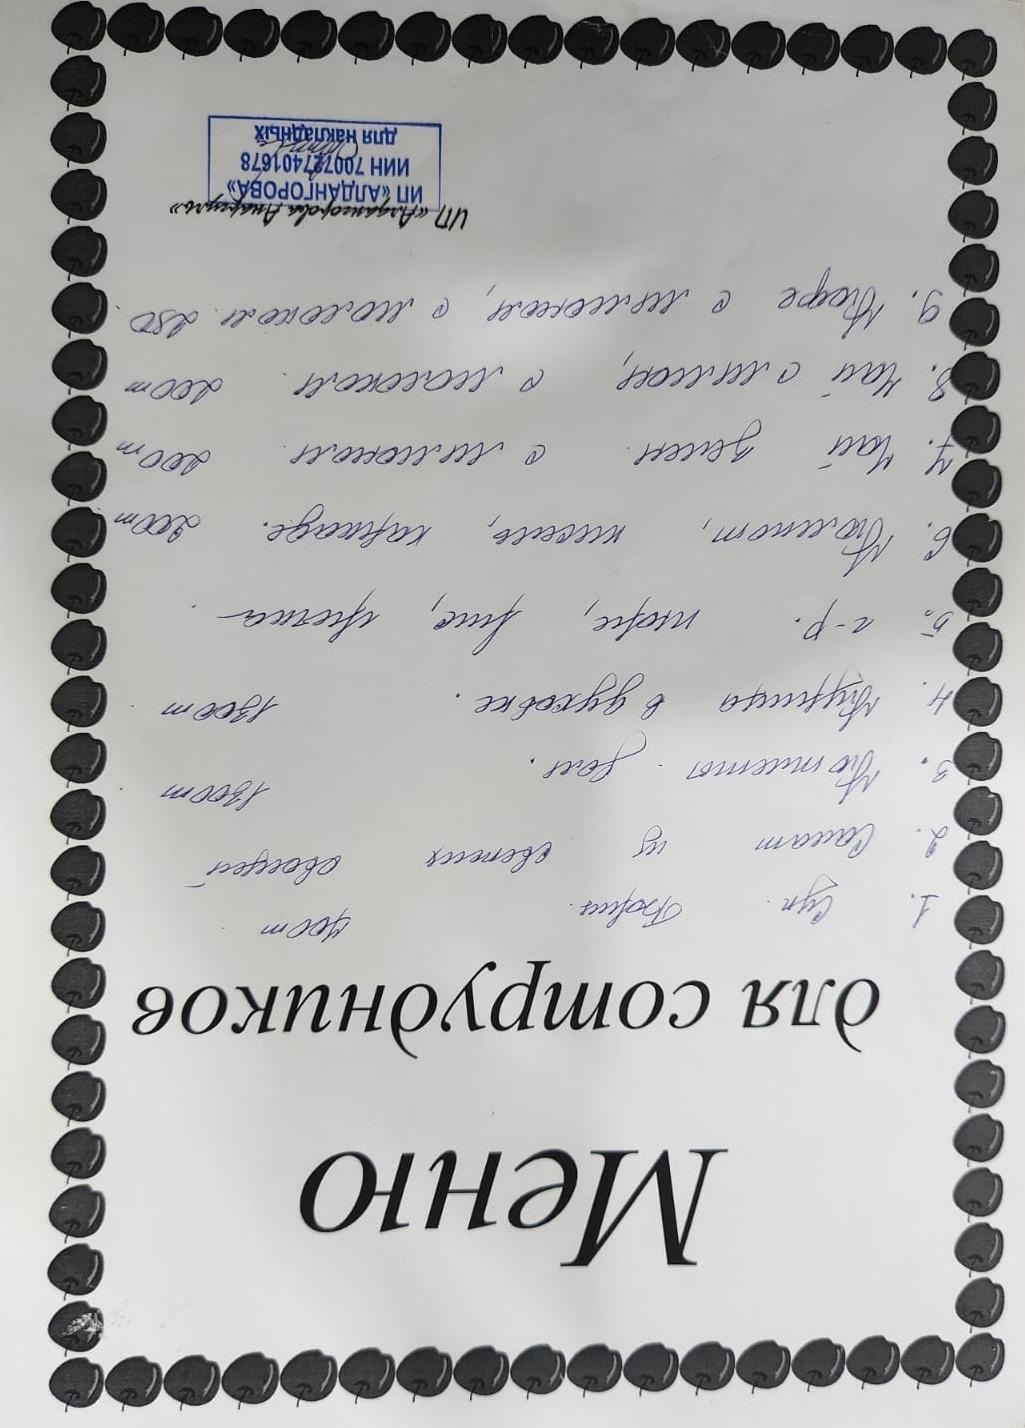 Меню
для сотрудников
1. Суп Борщ. 700т
2. Салат из свежих овощей
3. Котлеты дом. 1300т
4. Курица в духовке. 1300т
5. г-р. пюре, рис, гречка
6. Компот, кисель, каркаде. 200т
7. Чай зелен. с лимоном 200т
8. Чай с лимон, с молоком 200т
9. Кофе с лимоном, с молоком 250
ИП «Алдангорова Анаргуль»
ИП «АЛДАНГОРОВА»
ИИН 700727401678
для накладных